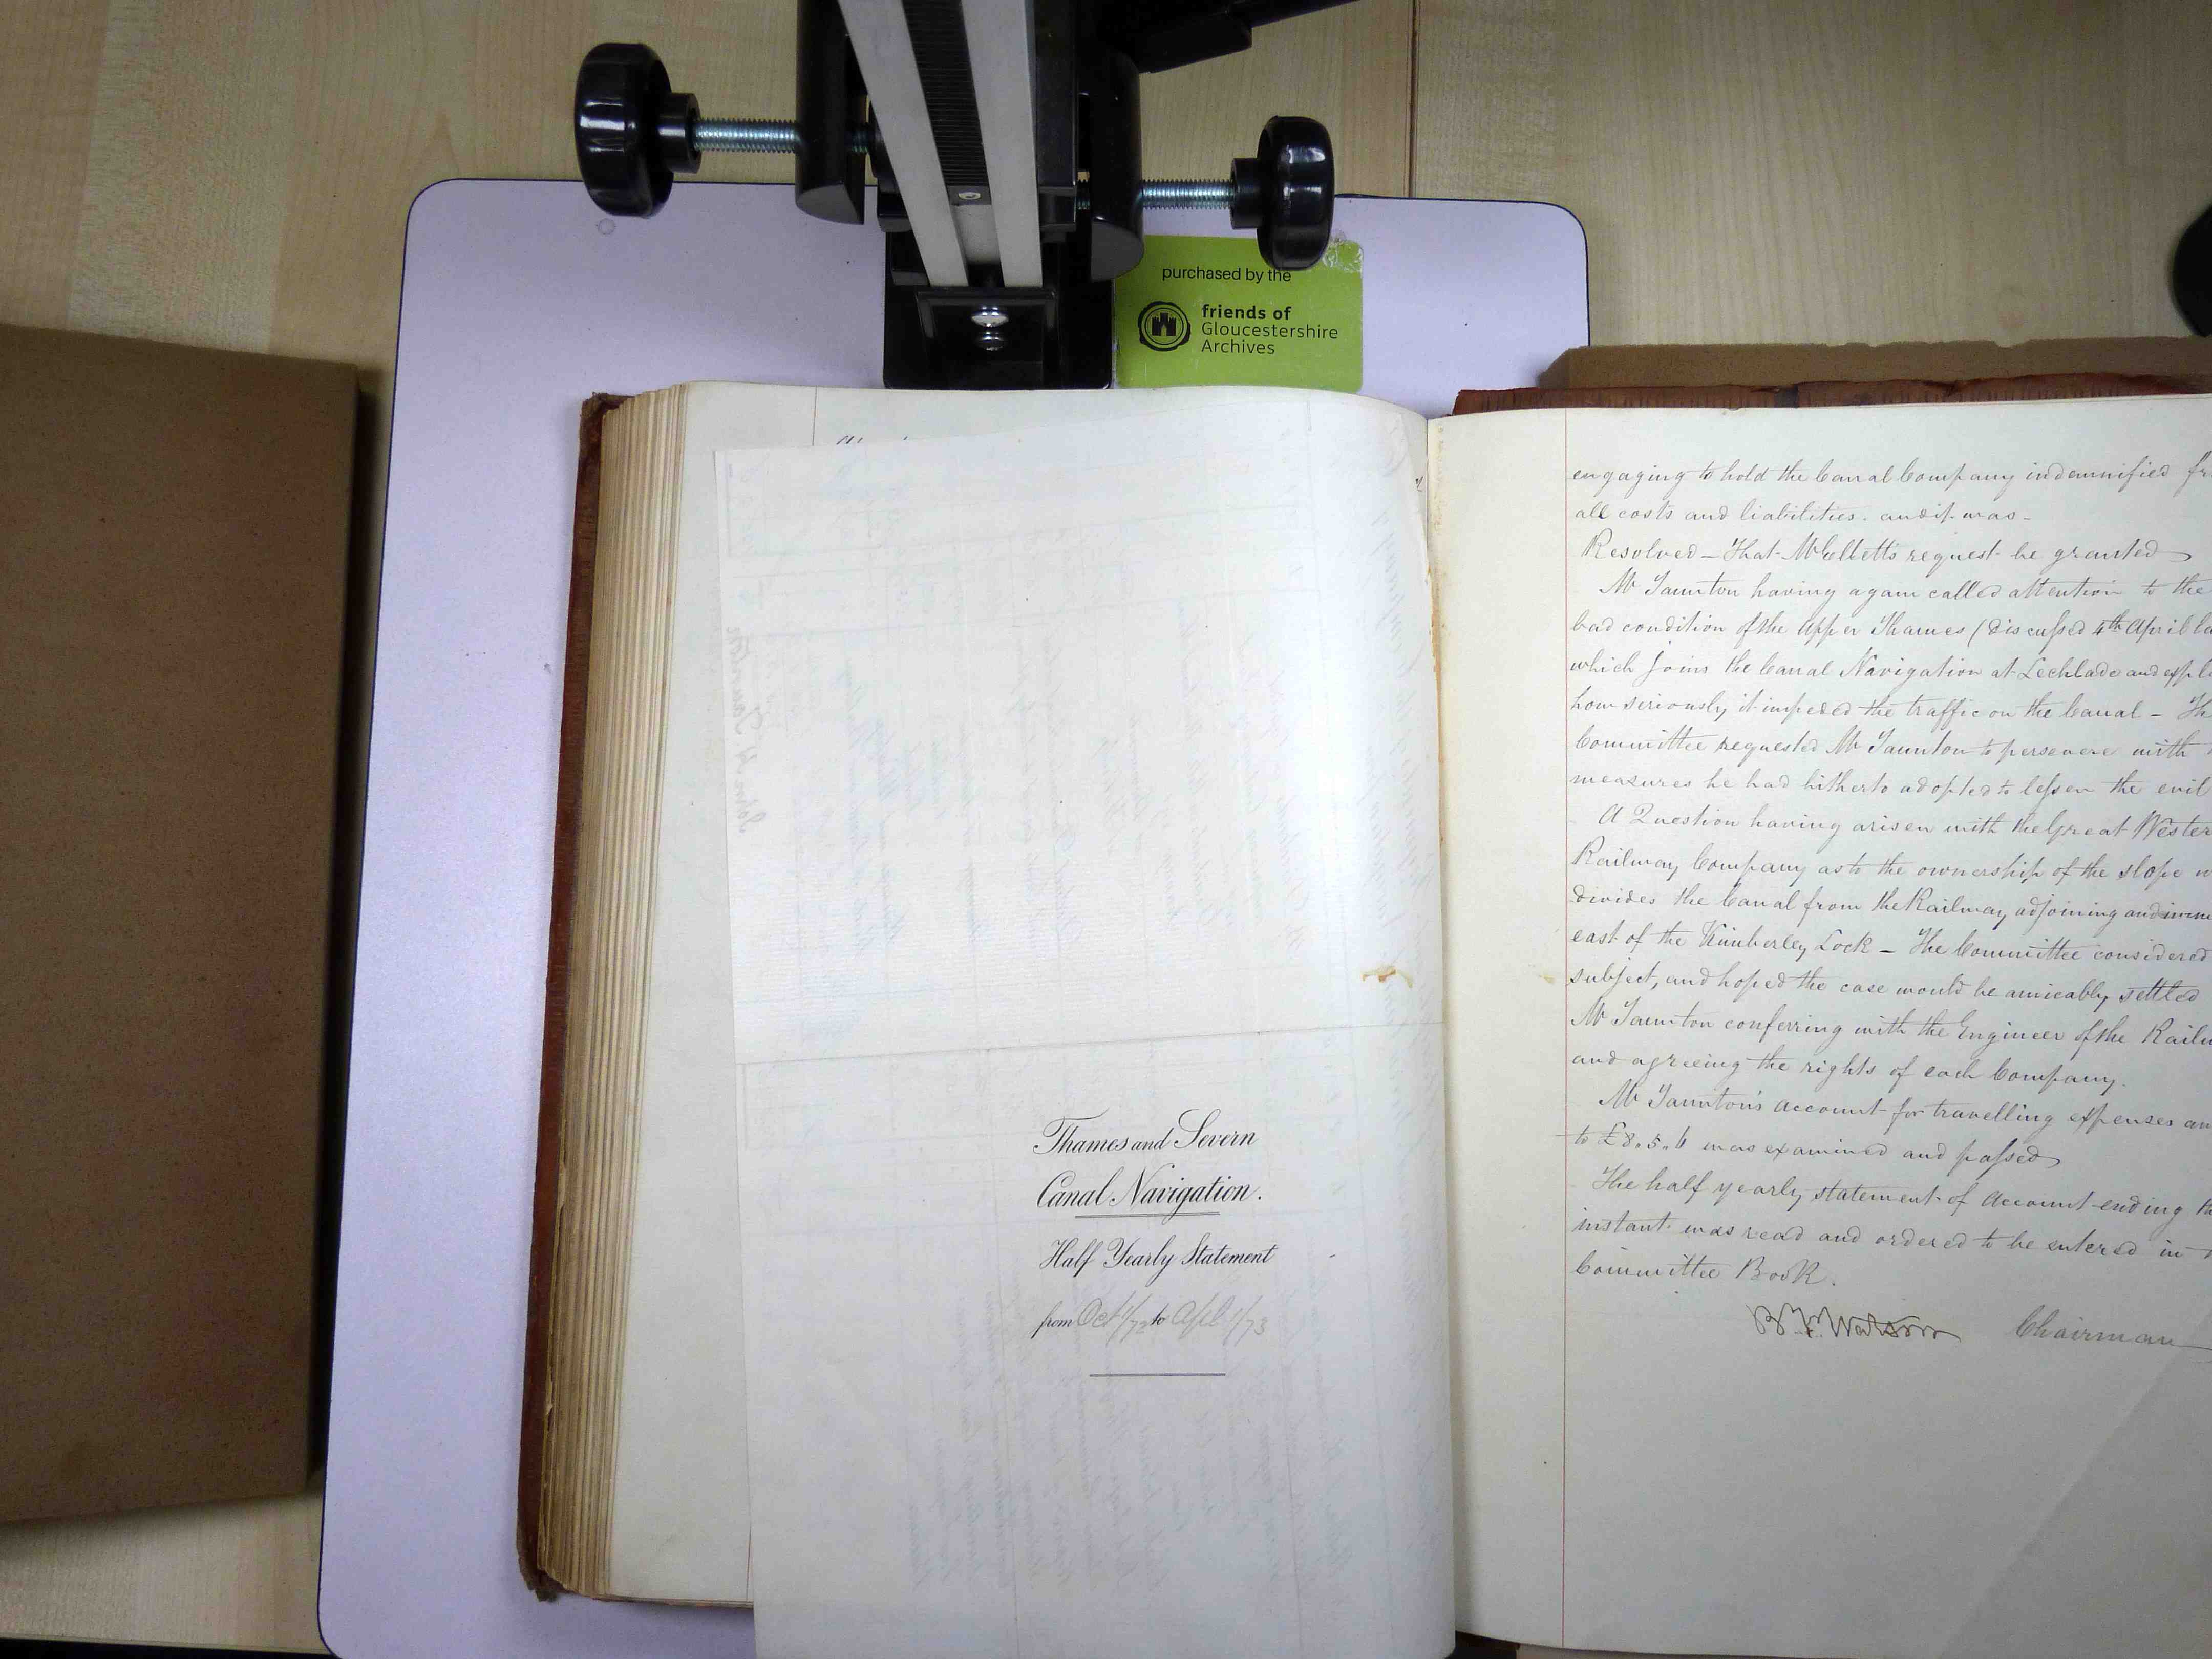 purchased by the
friends of
Gloucestershire
Archives
Thames and Severn
Canal Navigation.
Half Yearly Statement
from Oct 1/72 to Apl 1/73
engaging to hold the Canal Company indemnified fr
all costs and liabilities. and it was –
Resolved – That Mr Colletts request be granted
Mr Taunton having again called attention to the
bad condition of the Upper Thames (discussed 4th April la
which joins the Canal Navigation at Lechlade and expla
how seriously it impeded the traffic on the Canal – Th
Committee requested Mr Taunton to persevere with
measures he had hitherto adopted to lessen the evil
A Question having arisen with the Great Wester
Railway Company as to the ownership of the slope w
divides the Canal from the Railway adjoining and imme
east of the Kimberley Lock – The Committee considered
subject, and hoped the case would be amicably settled
Mr Taunton conferring with the Engineer of the Railw
and agreeing the rights of each Company.
Mr Taunton's account for travelling expenses am
to £8.5.6 was examined and passed
The half yearly statement of Account ending th
instant was read and ordered to be entered in
Committee Book.
Watson Chairman